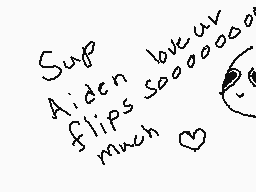 Sup
Aiden love ur
flips sooooooo
much